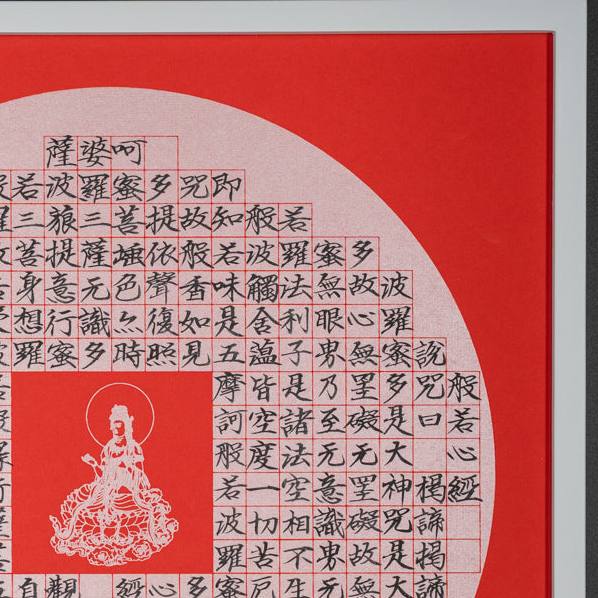 薩婆呵
若波羅蜜多咒即
三藐三菩提故知般若
菩提薩埵依般若波羅蜜多
身意无色聲香味觸法無故波
想行識亦復如是舍利眼心羅
羅蜜多時照見五蘊子界無蜜說
摩皆是乃罣多咒般
訶空諸至礙是曰若
般度法无无大心
若一空意罣神揭經
波切相識礙咒諦
羅苦不界故是揭
自觀 經心多蜜厄生无無大諦